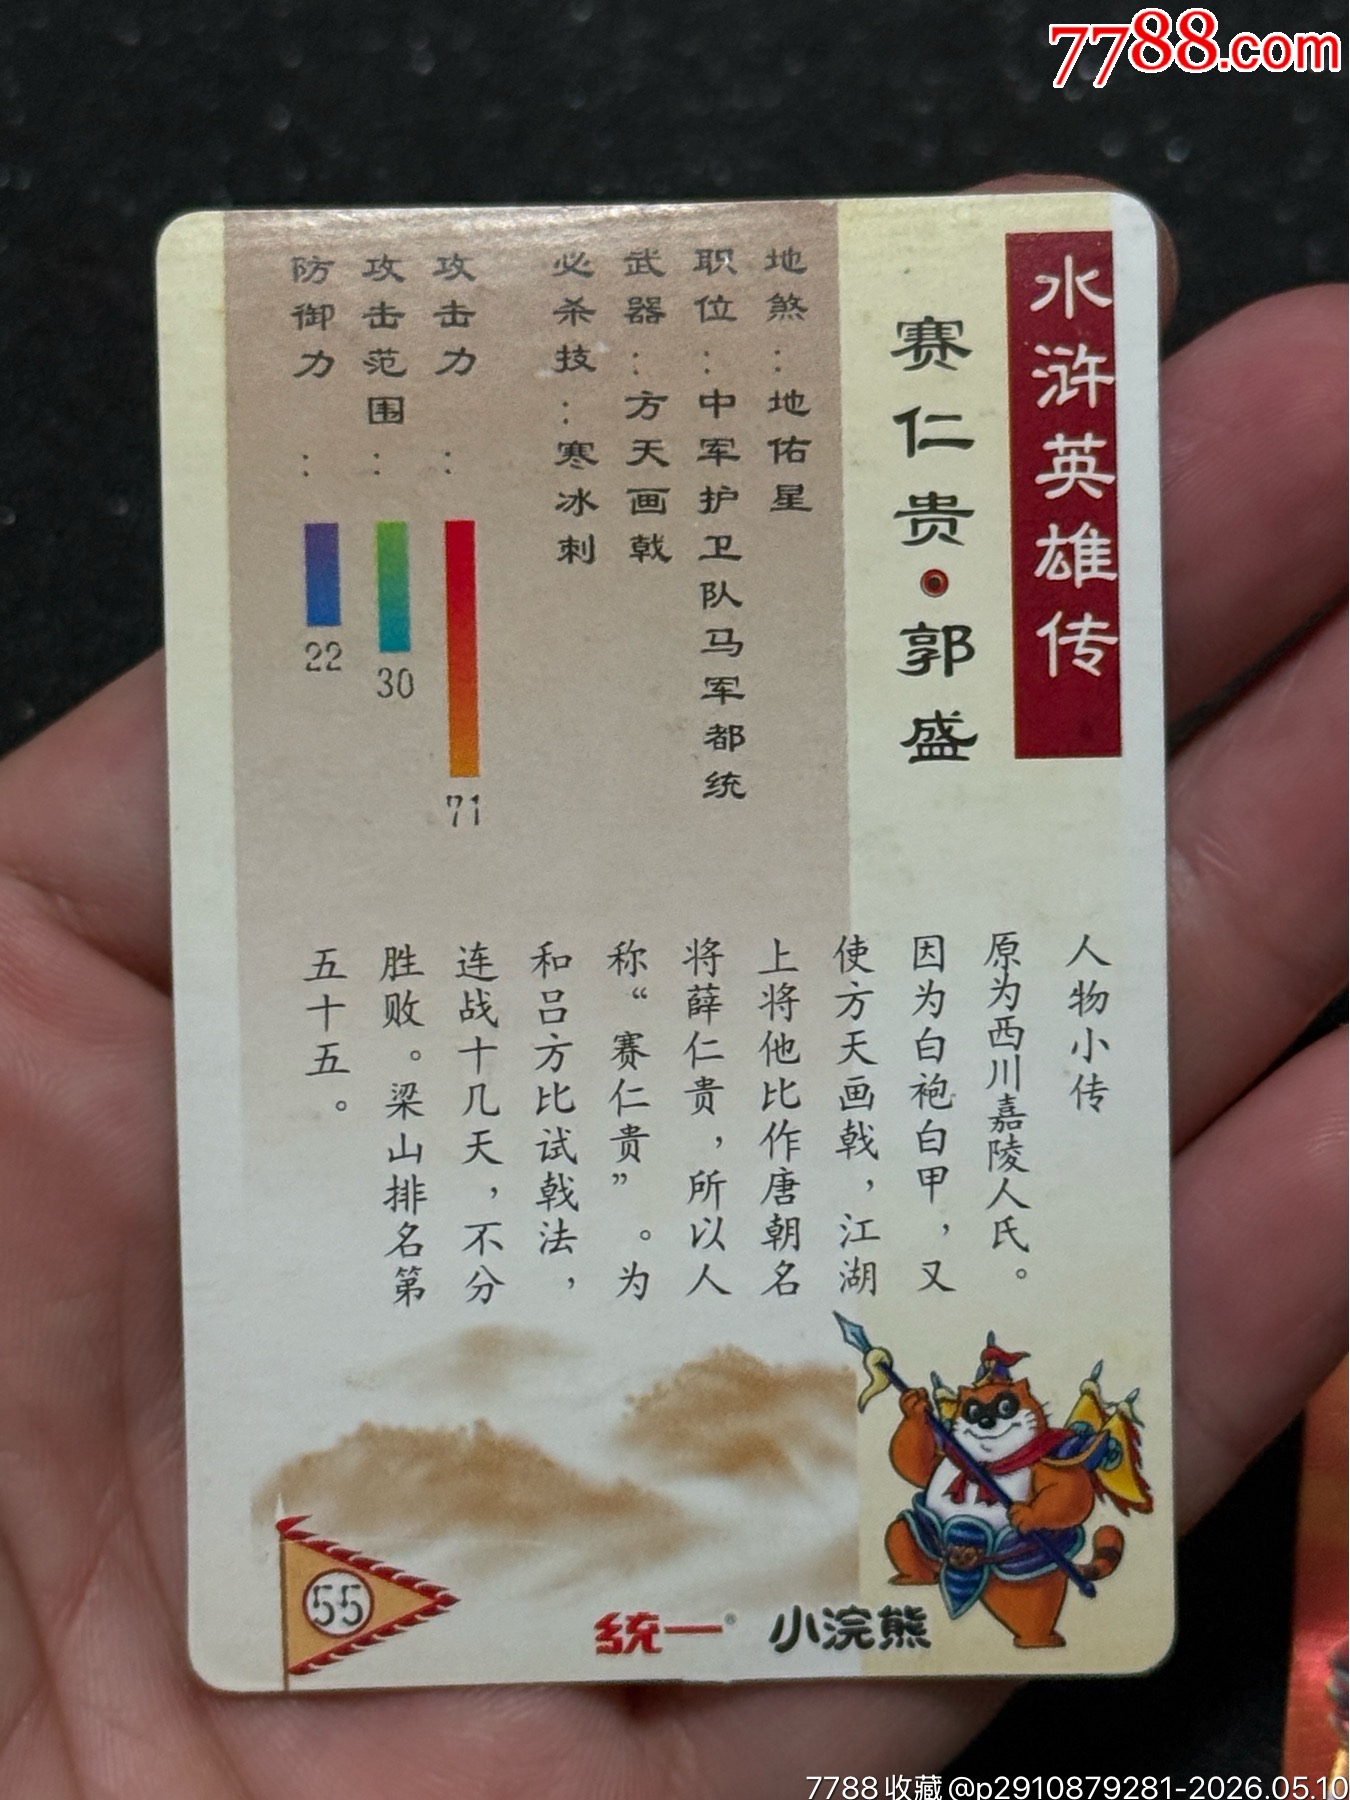 7788.com
水浒英雄传
赛仁贵·郭盛
地煞：地佑星
职位：中军护卫队马军都统
武器：方天画戟
必杀技：寒冰刺
攻击力：71
攻击范围：30
防御力：22
人物小传
原为西川嘉陵人氏。
因为白袍白甲，又
使方天画戟，江湖
上将他比作唐朝名
将薛仁贵，所以人
称“赛仁贵”。为
和吕方比试戟法，
连战十几天，不分
胜败。梁山排名第
五十五。
55
统一® 小浣熊
7788收藏@p2910879281-2026.05.10